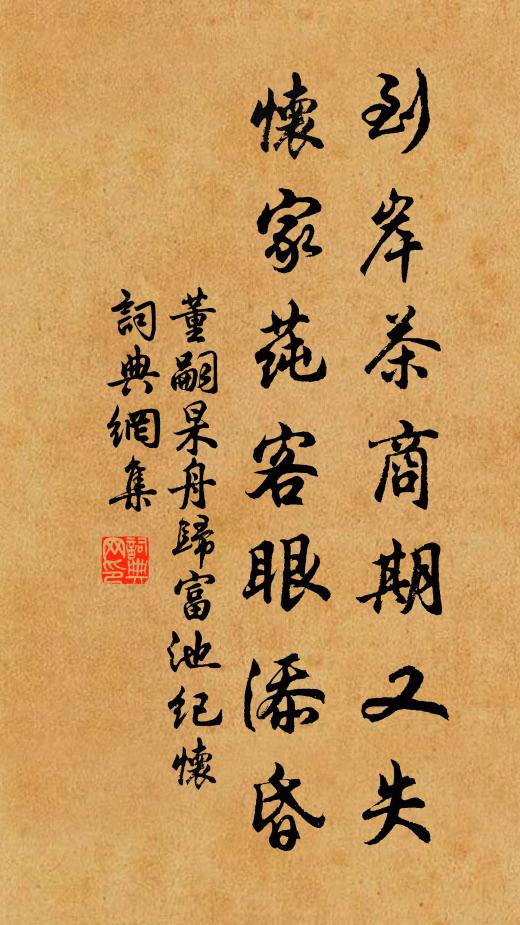 到岸茶商期又失
懷家蒓客眼添昏
董嗣杲舟歸富池紀懷
詞典網集
詞典
网印